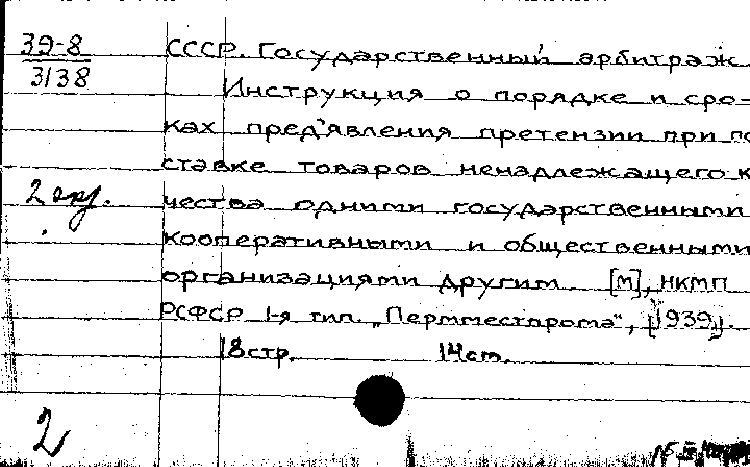 39-8
3138
СССР. Государственный арбитраж
Инструкция о порядке и сро-
ках пред'явления претензии при по
ставке товаров ненадлежащего к
2 экз.
чества одними государственными
кооперативными и общественными
организациями другим. [М], НКМП
РСФСР 1-я тип. „Пермместпрома", [1939].
18 стр. 14 см.
2